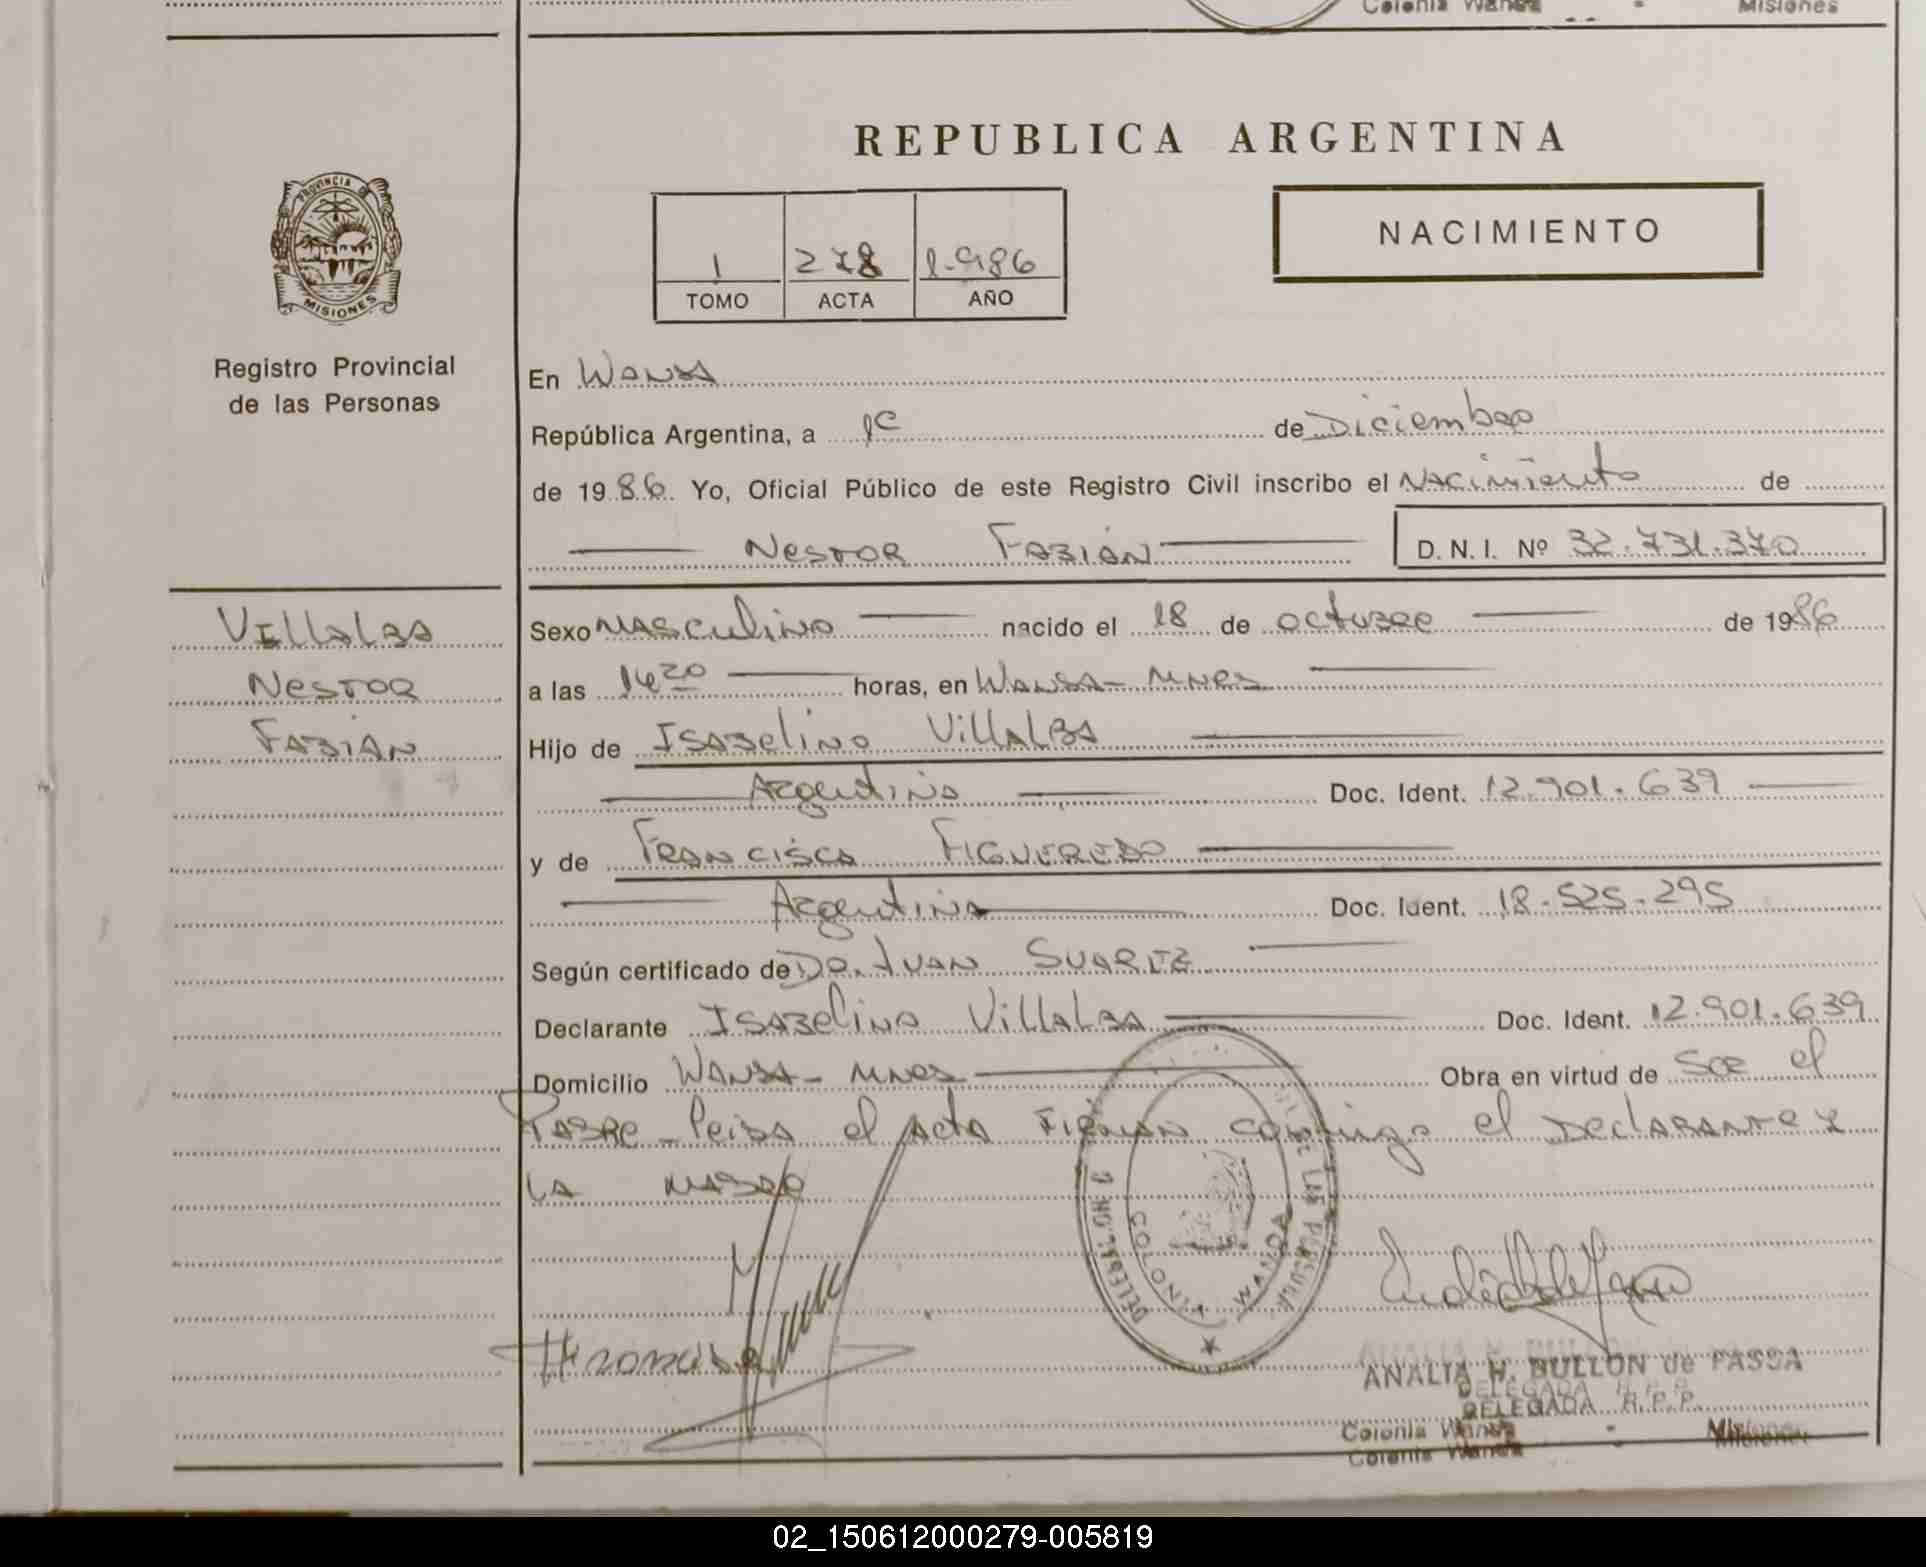 Colonia Wanda - Misiones
REPUBLICA ARGENTINA
PROVINCIA DE
MISIONES
NACIMIENTO
1 278 1.986
TOMO ACTA AÑO
Registro Provincial
de las Personas
En Wanda
República Argentina, a de Diciembre
de 1986. Yo, Oficial Público de este Registro Civil inscribo el Nacimiento de
Nestor Fabián D.N.I. Nº 32.731.370
Villalba
Nestor
Fabián
Sexo Masculino nacido el 18 de octubre de 1986
a las 14 20 horas, en Wanda - Mnes
Hijo de Isabelino Villalba
Argentino Doc. Ident. 12.901.639
y de Francisca Figueredo
Argentina Doc. Ident. 18.525.295
Según certificado de Dr. Juan Suarez
Declarante Isabelino Villalba Doc. Ident. 12.901.639
Domicilio Wanda - Mnes Obra en virtud de Ser el
Padre - Leida el acta Firman conmigo el Declarante y
la Madre
DE LAS PERSONAS
DELEGACION
COLONIA WANDA
Francisca
ANALIA H. BULLON de PASSA
DELEGADA R.P.P.
Colonia Wanda - Misiones
02_150612000279-005819